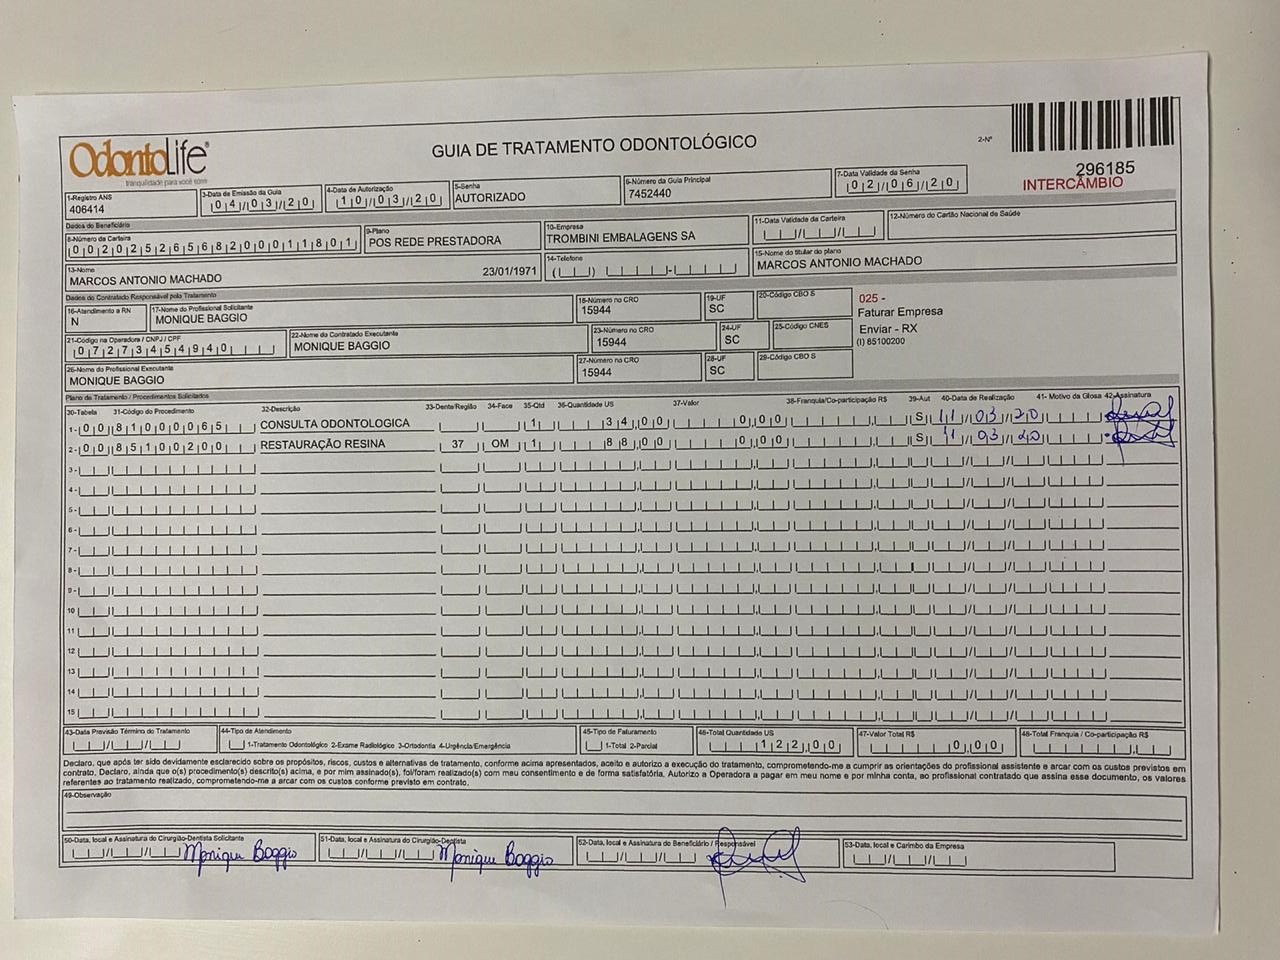 OdontoLife®
tranquilidade para você sorrir
GUIA DE TRATAMENTO ODONTOLÓGICO
2-Nº
296185
INTERCÂMBIO
1-Registro ANS
406414
3-Data de Emissão da Guia
04/03/20
4-Data de Autorização
10/03/20
5-Senha
AUTORIZADO
6-Número da Guia Principal
7452440
7-Data Validade da Senha
02/06/20
Dados do Beneficiário
8-Número da Carteira
00202526568200011801
9-Plano
POS REDE PRESTADORA
10-Empresa
TROMBINI EMBALAGENS SA
11-Data Validade da Carteira
12-Número do Cartão Nacional de Saúde
13-Nome
MARCOS ANTONIO MACHADO 23/01/1971
14-Telefone
15-Nome do titular do plano
MARCOS ANTONIO MACHADO
Dados do Contratado Responsável pelo Tratamento
16-Atendimento a RN
N
17-Nome do Profissional Solicitante
MONIQUE BAGGIO
18-Número no CRO
15944
19-UF
SC
20-Código CBO S
025 -
Faturar Empresa
Enviar - RX
(I) 85100200
21-Código na Operadora / CNPJ / CPF
07273454940
22-Nome do Contratado Executante
MONIQUE BAGGIO
23-Número no CRO
15944
24-UF
SC
25-Código CNES
26-Nome do Profissional Executante
MONIQUE BAGGIO
27-Número no CRO
15944
28-UF
SC
29-Código CBO S
Plano de Tratamento / Procedimentos Solicitados
30-Tabela 31-Código do Procedimento 32-Descrição 33-Dente/Região 34-Face 35-Qtd 36-Quantidade US 37-Valor 38-Franquia/Co-participação R$ 39-Aut 40-Data de Realização 41- Motivo da Glosa 42-Assinatura
1- 00 81000065 CONSULTA ODONTOLOGICA 1 34,00 0,00 S 11/03/20
2- 00 85100200 RESTAURAÇÃO RESINA 37 OM 1 88,00 0,00 S 11/03/20
3-
4-
5-
6-
7-
8-
9-
10
11
12
13
14
15
43-Data Previsão Término do Tratamento
44-Tipo de Atendimento
1-Tratamento Odontológico 2-Exame Radiológico 3-Ortodontia 4-Urgência/Emergência
45-Tipo de Faturamento
1-Total 2-Parcial
46-Total Quantidade US
122,00
47-Valor Total R$
0,00
48-Total Franquia / Co-participação R$
Declaro, que após ter sido devidamente esclarecido sobre os propósitos, riscos, custos e alternativas de tratamento, conforme acima apresentados, aceito e autorizo a execução do tratamento, comprometendo-me a cumprir as orientações do profissional assistente e arcar com os custos previstos em
contrato. Declaro, ainda que o(s) procedimento(s) descrito(s) acima, e por mim assinado(s), foi/foram realizado(s) com meu consentimento e de forma satisfatória. Autorizo a Operadora a pagar em meu nome e por minha conta, ao profissional contratado que assina esse documento, os valores
referentes ao tratamento realizado, comprometendo-me a arcar com os custos conforme previsto em contrato.
49-Observação
50-Data, local e Assinatura do Cirurgião-Dentista Solicitante
Monique Baggio
51-Data, local e Assinatura do Cirurgião-Dentista
Monique Baggio
52-Data, local e Assinatura do Beneficiário / Responsável
53-Data, local e Carimbo da Empresa